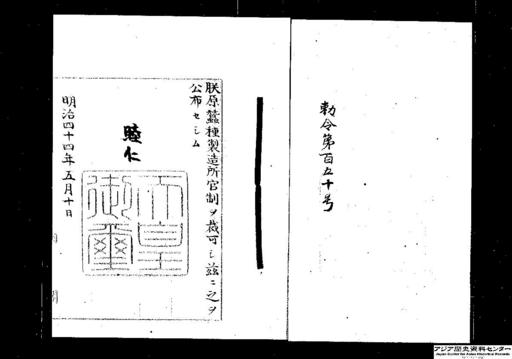 勅令第百五十号
朕原蚕種製造所官制ヲ裁可シ茲ニ之ヲ
公布セシム
睦仁
天皇
御璽
明治四十四年五月十日
アジア歴史資料センター
Japan Center for Asian Historical Records